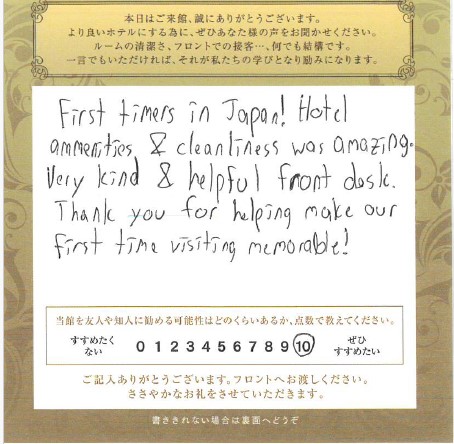 本日はご来館、誠にありがとうございます。
より良いホテルにする為に、ぜひあなた様の声をお聞かせください。
ルームの清潔さ、フロントでの接客…、何でも結構です。
一言でもいただければ、それが私たちの学びとなり励みになります。
First timers in Japan! Hotel
ammenities & cleanliness was amazing.
Very kind & helpful front desk.
Thank you for helping make our
first time visiting memorable!
当館を友人や知人に勧める可能性はどのくらいあるか、点数で教えてください。
すすめたく
ない
0 1 2 3 4 5 6 7 8 9 10
ぜひ
すすめたい
ご記入ありがとうございます。フロントへお渡しください。
ささやかなお礼をさせていただきます。
書ききれない場合は裏面へどうぞ